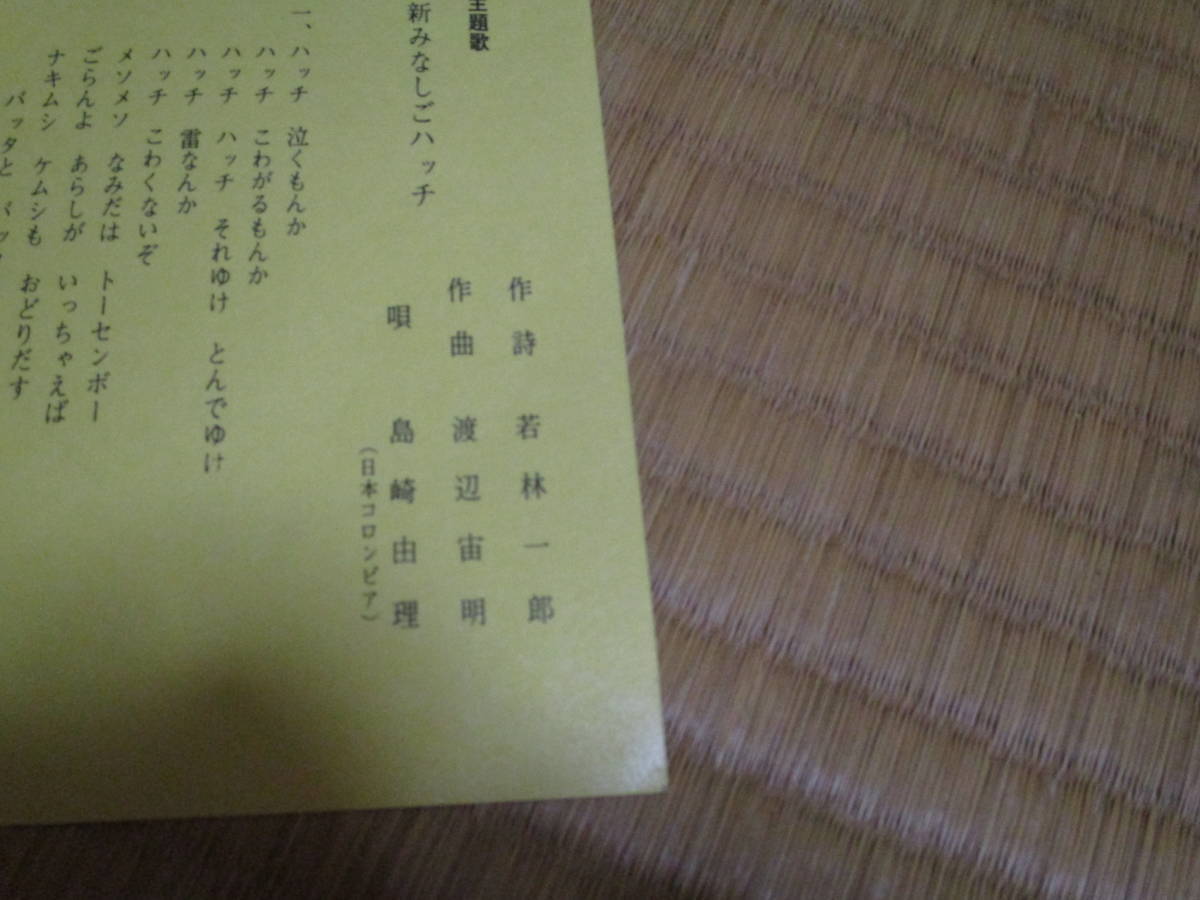 主題歌
新みなしごハッチ
作詩 若林一郎
作曲 渡辺宙明
唄 島崎由理
(日本コロンビア)
一、ハッチ 泣くもんか
ハッチ こわがるもんか
ハッチ ハッチ それゆけ とんでゆけ
ハッチ 雷なんか
ハッチ こわくないぞ
メソメソ なみだは トーセンボー
ごらんよ あらしが いっちゃえば
ナキムシ ケムシも おどりだす
バッタと バッ